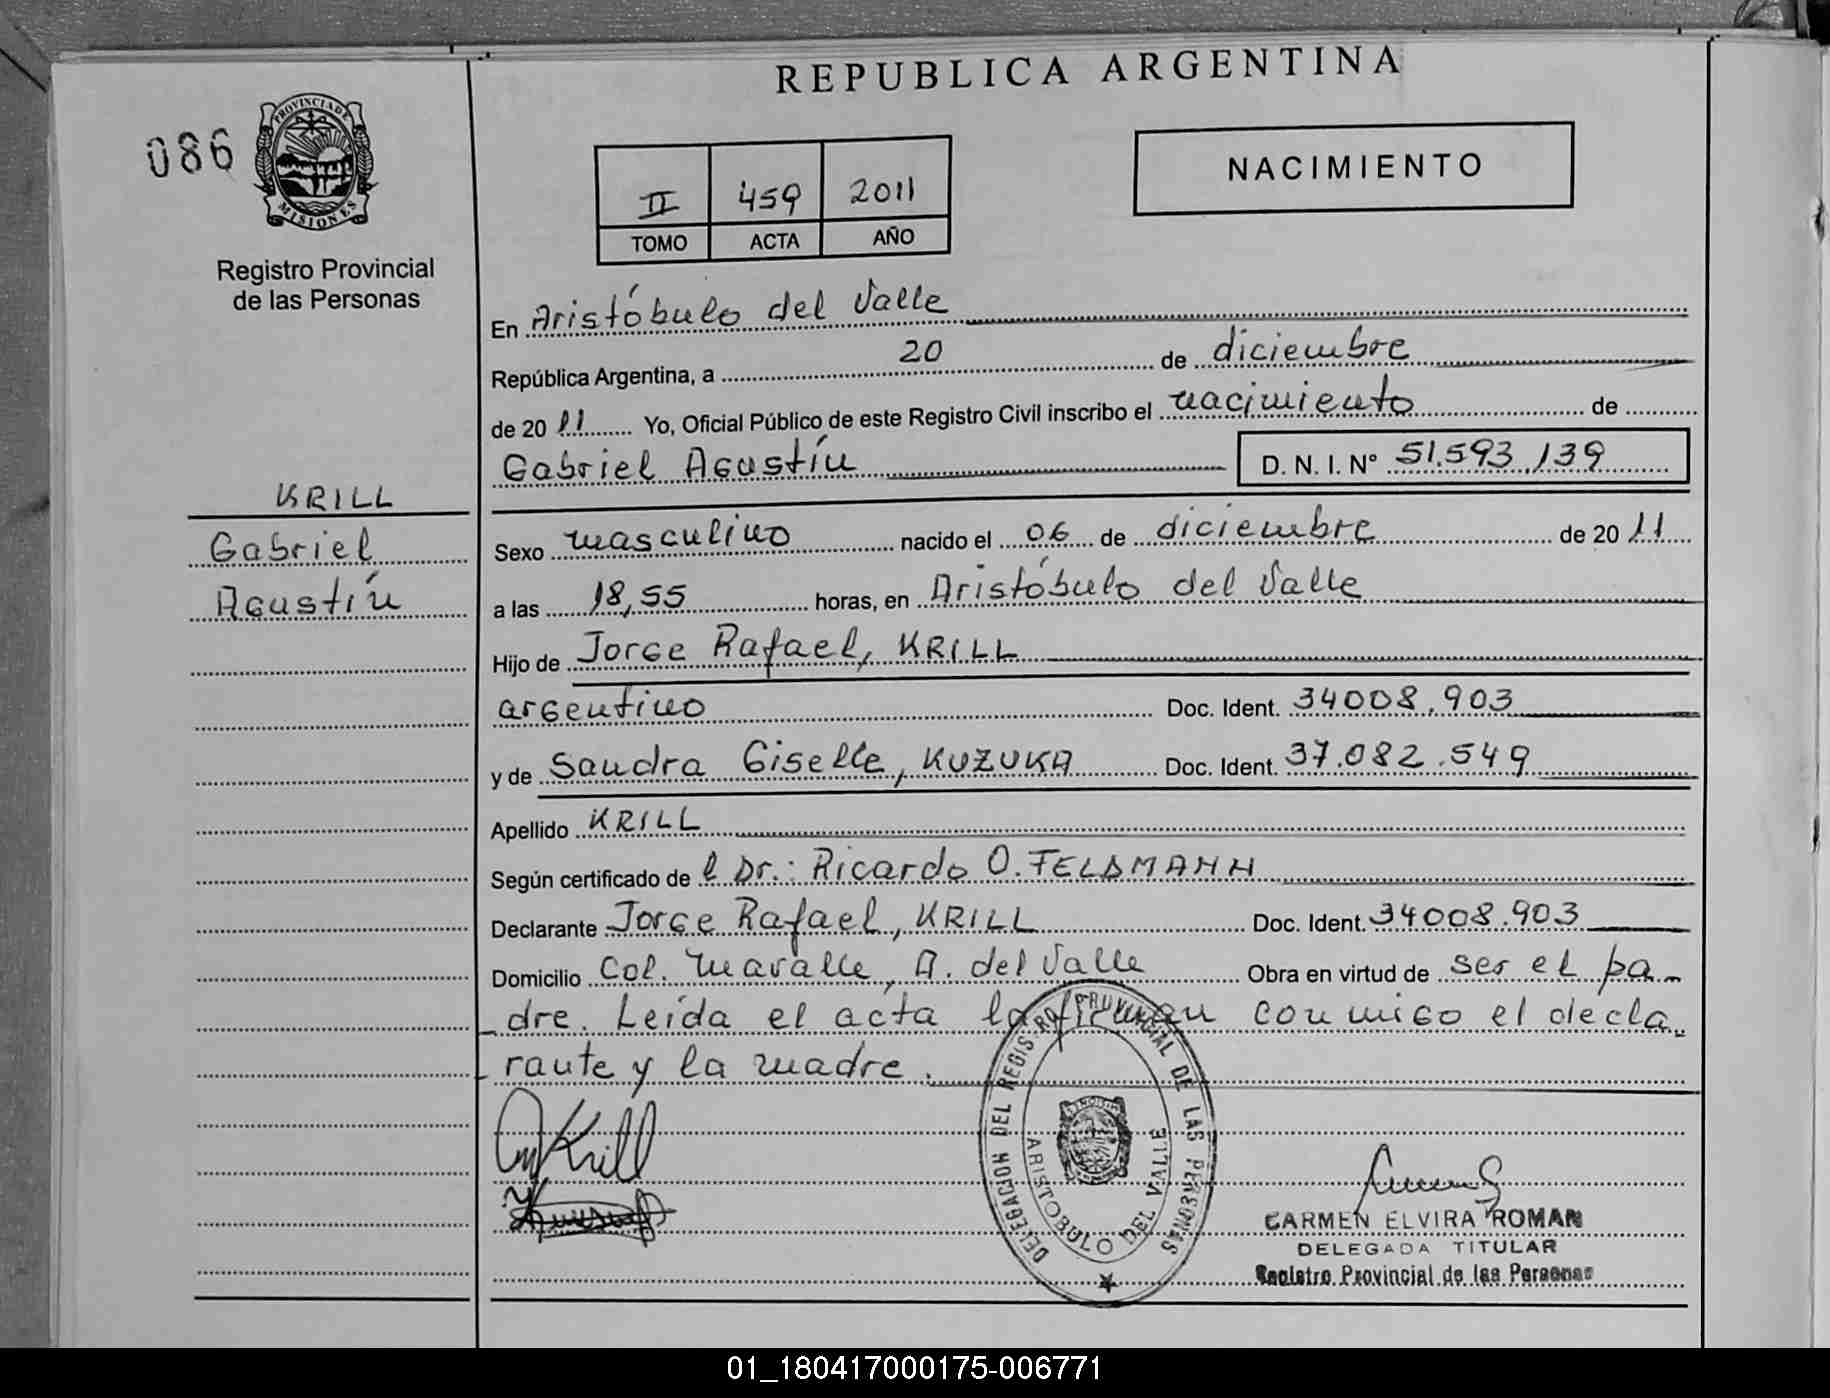 REPUBLICA ARGENTINA
086
PROVINCIA DE
MISIONES
Registro Provincial
de las Personas
II 459 2011
TOMO ACTA AÑO
NACIMIENTO
En Aristóbulo del Valle
República Argentina, a 20 de diciembre
de 2011 Yo, Oficial Público de este Registro Civil inscribo el nacimiento de
Gabriel Agustín D. N. I. Nº 51.593.139
KRILL
Gabriel
Agustín
Sexo masculino nacido el 06 de diciembre de 2011
a las 18,55 horas, en Aristóbulo del Valle
Hijo de Jorge Rafael, KRILL
argentino Doc. Ident. 34008.903
y de Sandra Giselle, KUZUKA Doc. Ident. 37.082.549
Apellido KRILL
Según certificado de l Dr.: Ricardo O. FELDMANN
Declarante Jorge Rafael, KRILL Doc. Ident. 34008.903
Domicilio Col. Mavalle, A. del Valle Obra en virtud de ser el pa-
dre. Leída el acta la firman conmigo el decla-
rante y la madre.
Krill
DELEGACION DEL REGISTRO PROVINCIAL DE LAS PERSONAS
ARISTOBULO DEL VALLE
CARMEN ELVIRA ROMAN
DELEGADA TITULAR
Registro Provincial de las Personas
01_180417000175-006771